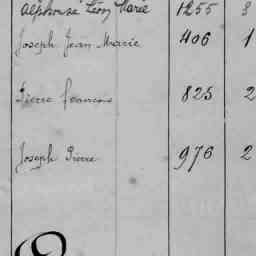 Alphonse Léon Marie 1255 3
Joseph Jean Marie 406 1
Pierre François 825 2
Joseph Pierre 976 2